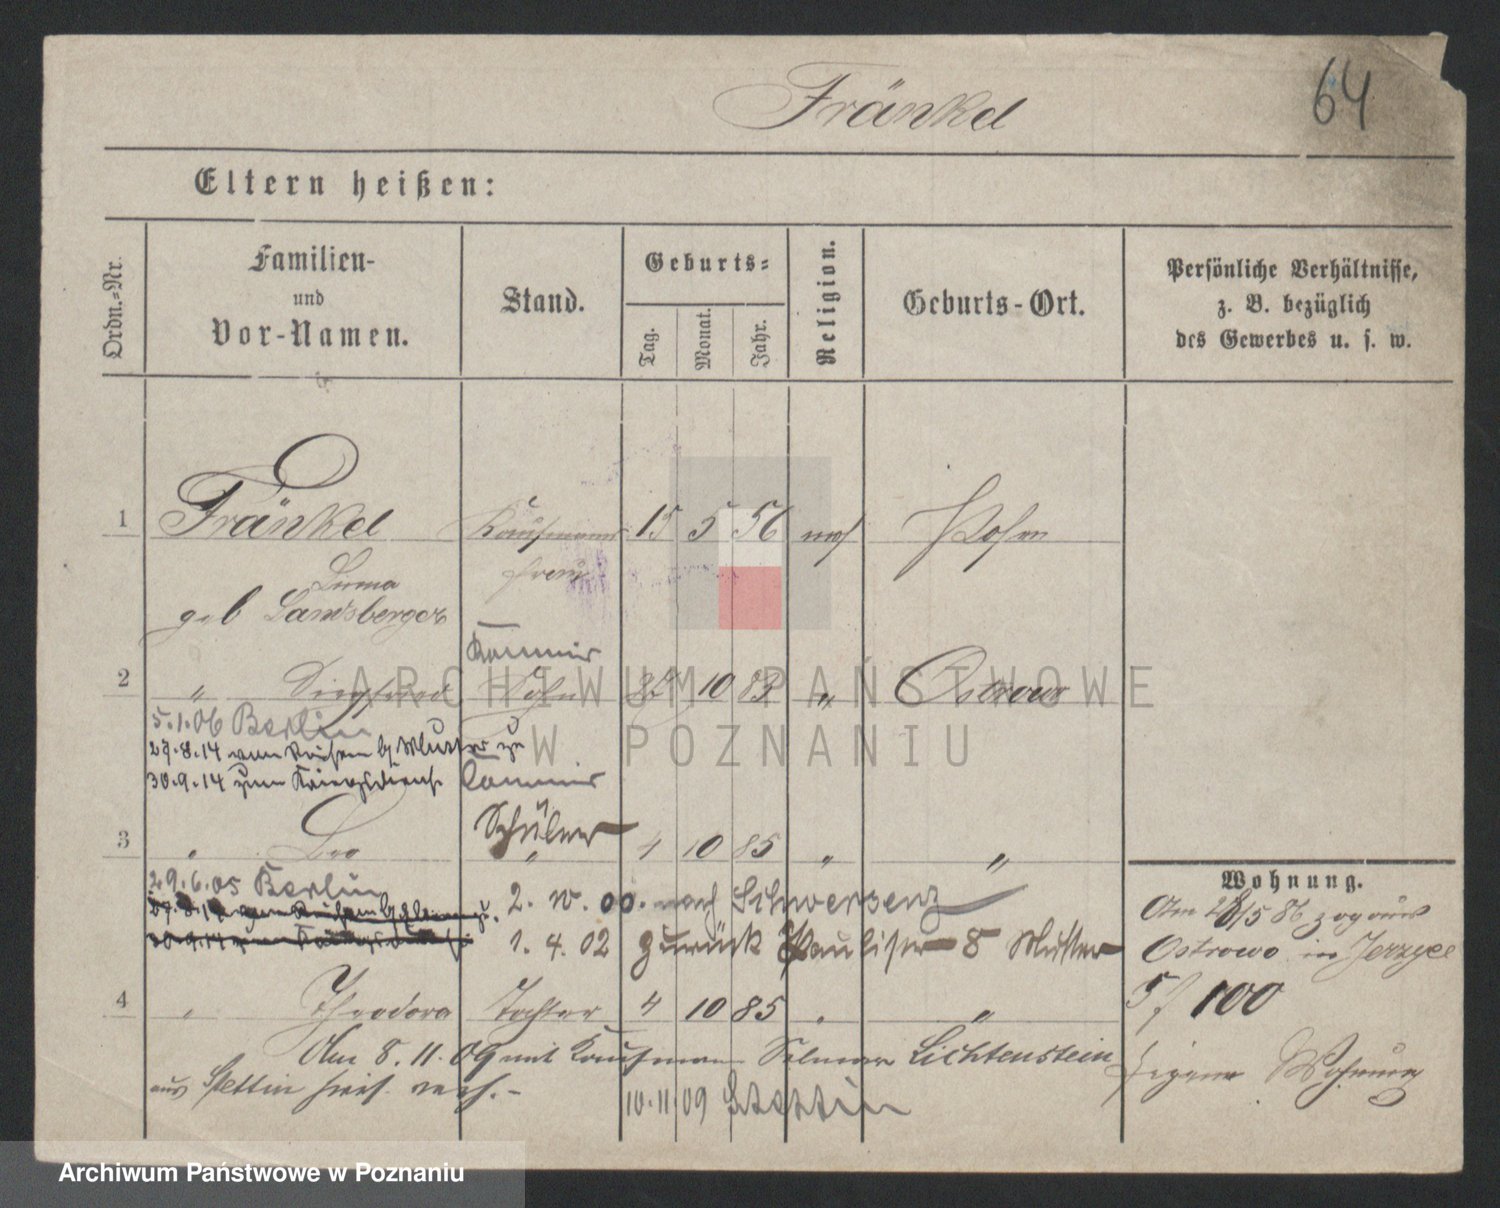 Fränkel
64
Eltern heißen:
Ordn.-Nr.
Familien-
und
Vor-Namen.
Stand.
Geburts-
Tag.
Monat.
Jahr.
Religion.
Geburts-Ort.
Persönliche Verhältnisse,
z. B. bezüglich
des Gewerbes u. s. w.
1 Fränkel Kaufmann 15 5 56 mos Posen
frau
geb Landsberger
Kommis
2 " Siegfried Sohn 10 83 " Ostrowo
5.1.06 Berlin
27.8.14 von Posen b/ Mutter zu
30.9.14 zum Kriegsdienst
Kommis
Schüler
3 " Leo " 4 10 85 " "
29.6.05 Berlin
2. 10. 00. nach Schwersenz
1. 4. 02 zurück Paulister 8 Mutter
4 " Theodora Tochter 4 10 85 " "
Am 8. 11. 09 mit Kaufmann Selmar Lichtenstein
aus Stettin hier verh. -
10.11.09 Stettin
Wohnung.
Am 28/5 86 zog aus
Ostrowo in Jerzyce
5 / 100
Eigene Wohnung
ARCHIWUM PAŃSTWOWE
W POZNANIU
Archiwum Państwowe w Poznaniu